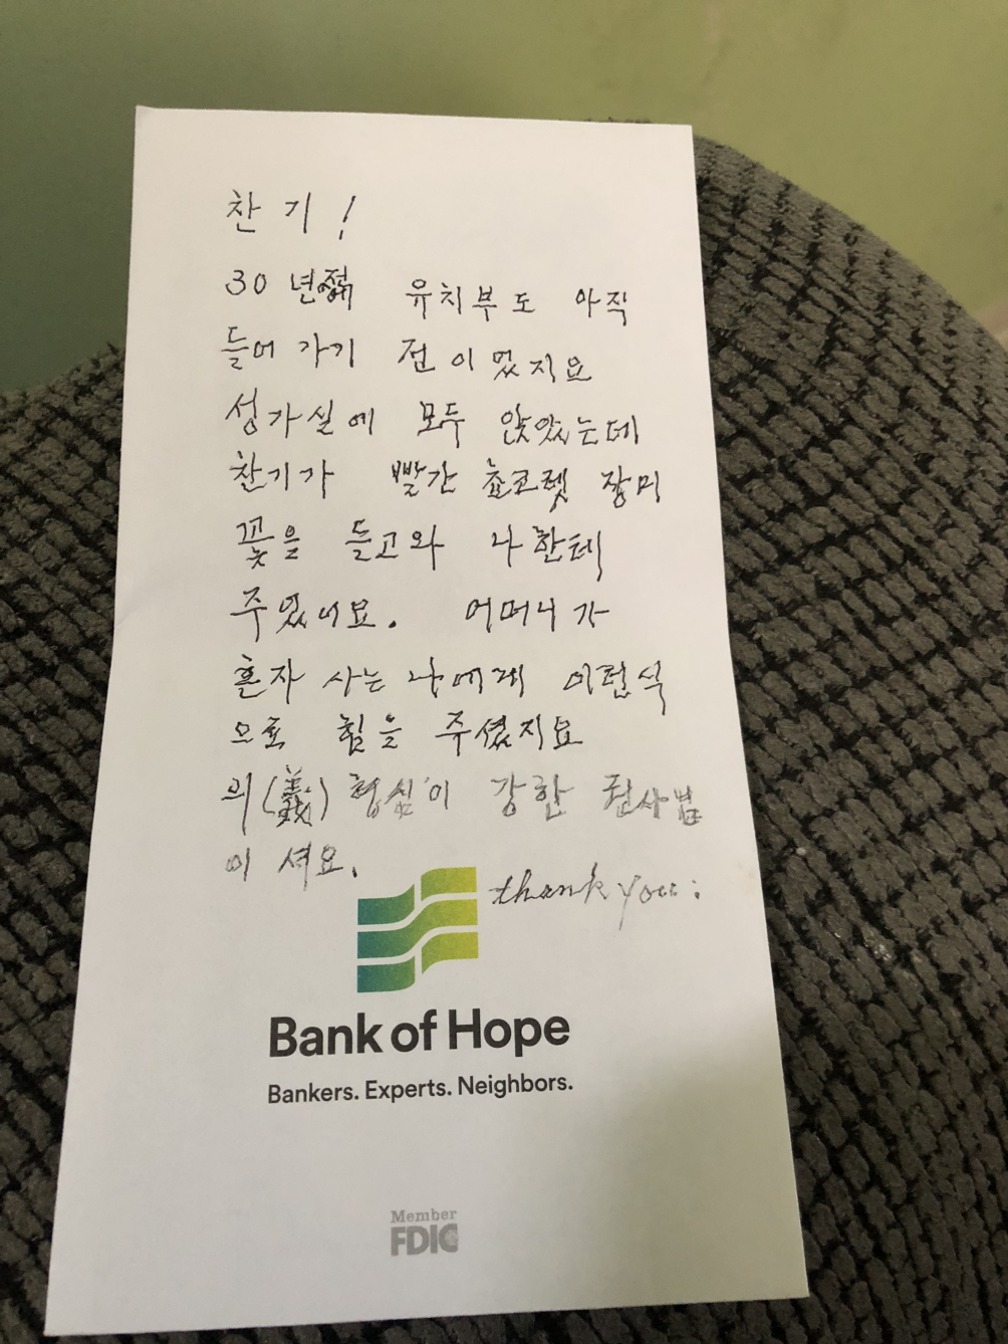 찬기!
30년 유치부도 아직
들어가기 전이었지요
성가실에 모두 앉았는데
찬기가 빨간 쵸코렛 장미
꽃을 들고와 나한테
주었어요. 어머니가
혼자 사는 나에게 이런식
으로 힘을 주셨지요
의(義) 강한 권사님
이셔요.
thank you:
Bank of Hope
Bankers. Experts. Neighbors.
Member
FDIC